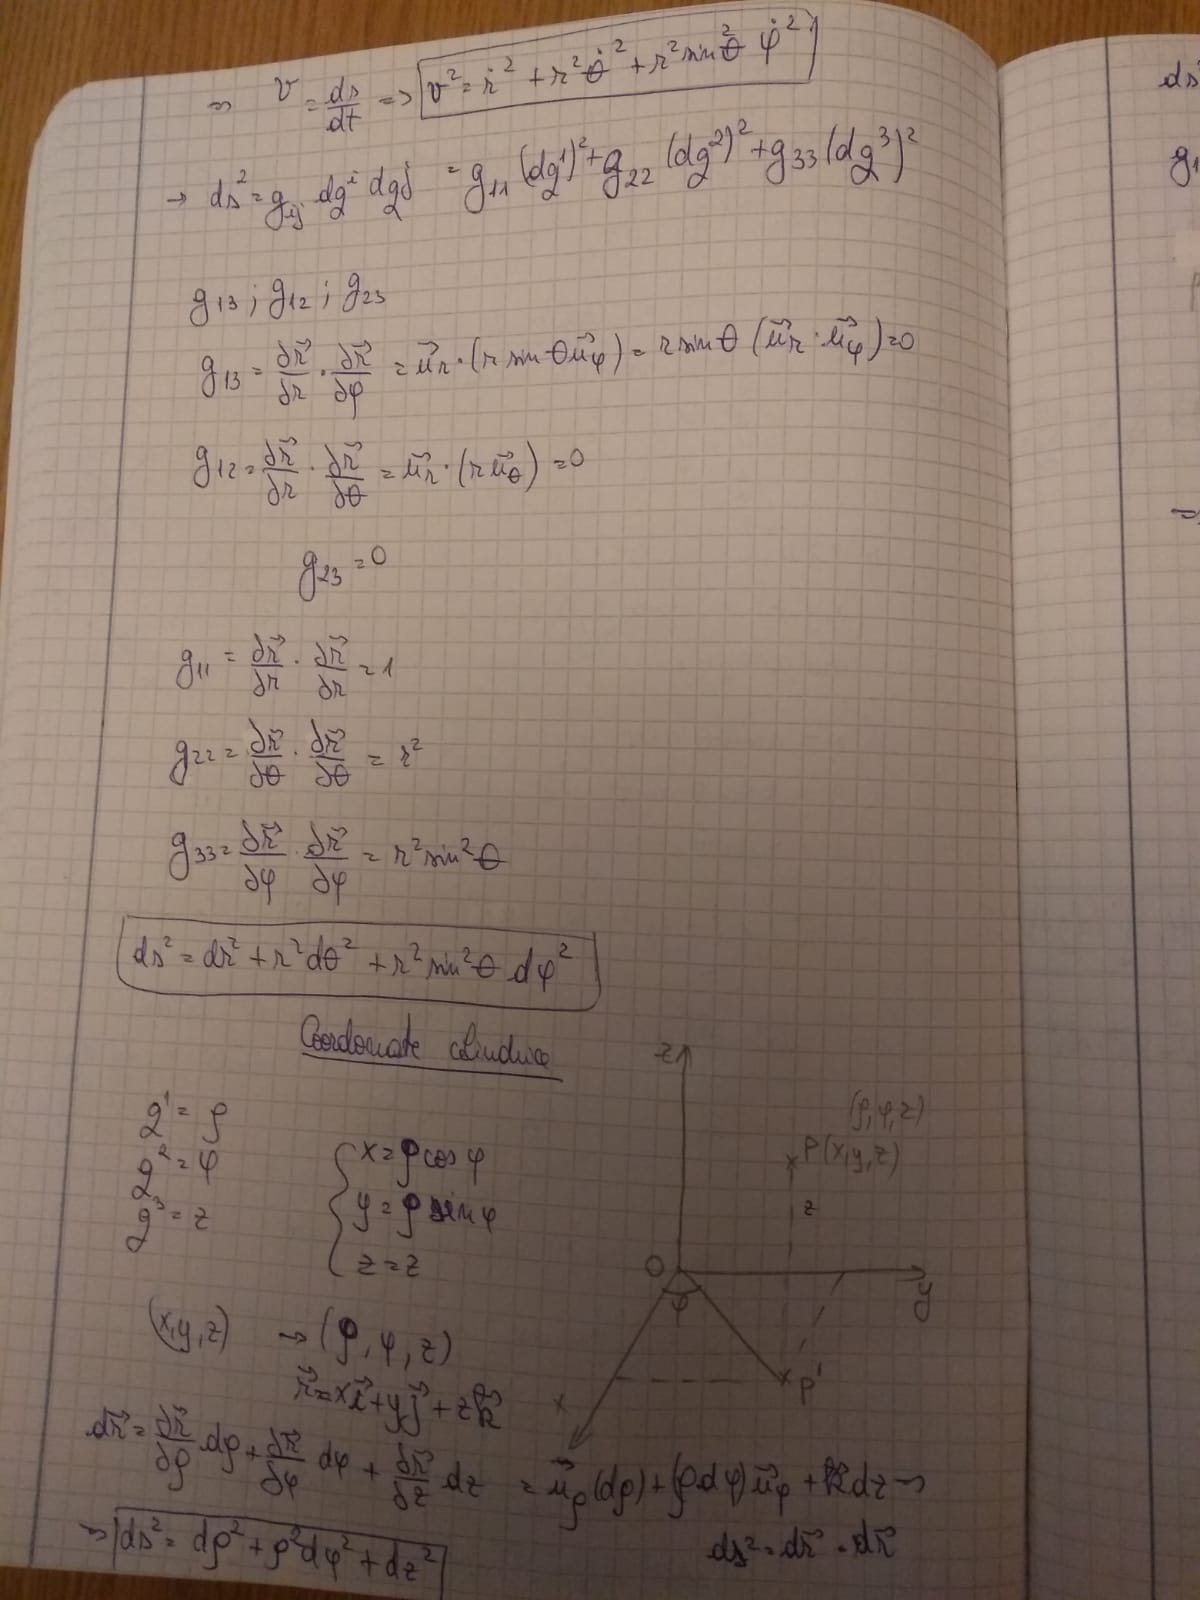 ⇒ v = ds/dt ⇒ v² = ṙ² + r²θ̇² + r² sin²θ φ̇²
→ ds² = g_ij dq^i dq^j = g₁₁ (dq¹)² + g₂₂ (dq²)² + g₃₃ (dq³)²
g₁₃ ; g₁₂ ; g₂₃
g₁₃ = ∂r⃗/∂r · ∂r⃗/∂φ = u⃗_r · (r sin θ u⃗_φ) = r sin θ (u⃗_r · u⃗_φ) = 0
g₁₂ = ∂r⃗/∂r · ∂r⃗/∂θ = u⃗_r · (r u⃗_θ) = 0
g₂₃ = 0
g₁₁ = ∂r⃗/∂r · ∂r⃗/∂r = 1
g₂₂ = ∂r⃗/∂θ · ∂r⃗/∂θ = r²
g₃₃ = ∂r⃗/∂φ · ∂r⃗/∂φ = r² sin²θ
ds² = dr² + r²dθ² + r² sin²θ dφ²
Coordonate cilindrice
q¹ = ρ
q² = φ
q³ = z
x = ρ cos φ
y = ρ sin φ
z = z
z
(ρ, φ, z)
P(x, y, z)
z
O
φ
y
x
P'
(x, y, z) → (ρ, φ, z)
r⃗ = x i⃗ + y j⃗ + z k⃗
dr⃗ = ∂r⃗/∂ρ dρ + ∂r⃗/∂φ dφ + ∂r⃗/∂z dz = u⃗_ρ (dρ) + (ρ dφ) u⃗_φ + k⃗ dz ⇒
⇒ ds² = dρ² + ρ²dφ² + dz²
ds² = dr⃗ · dr⃗
ds
g₁